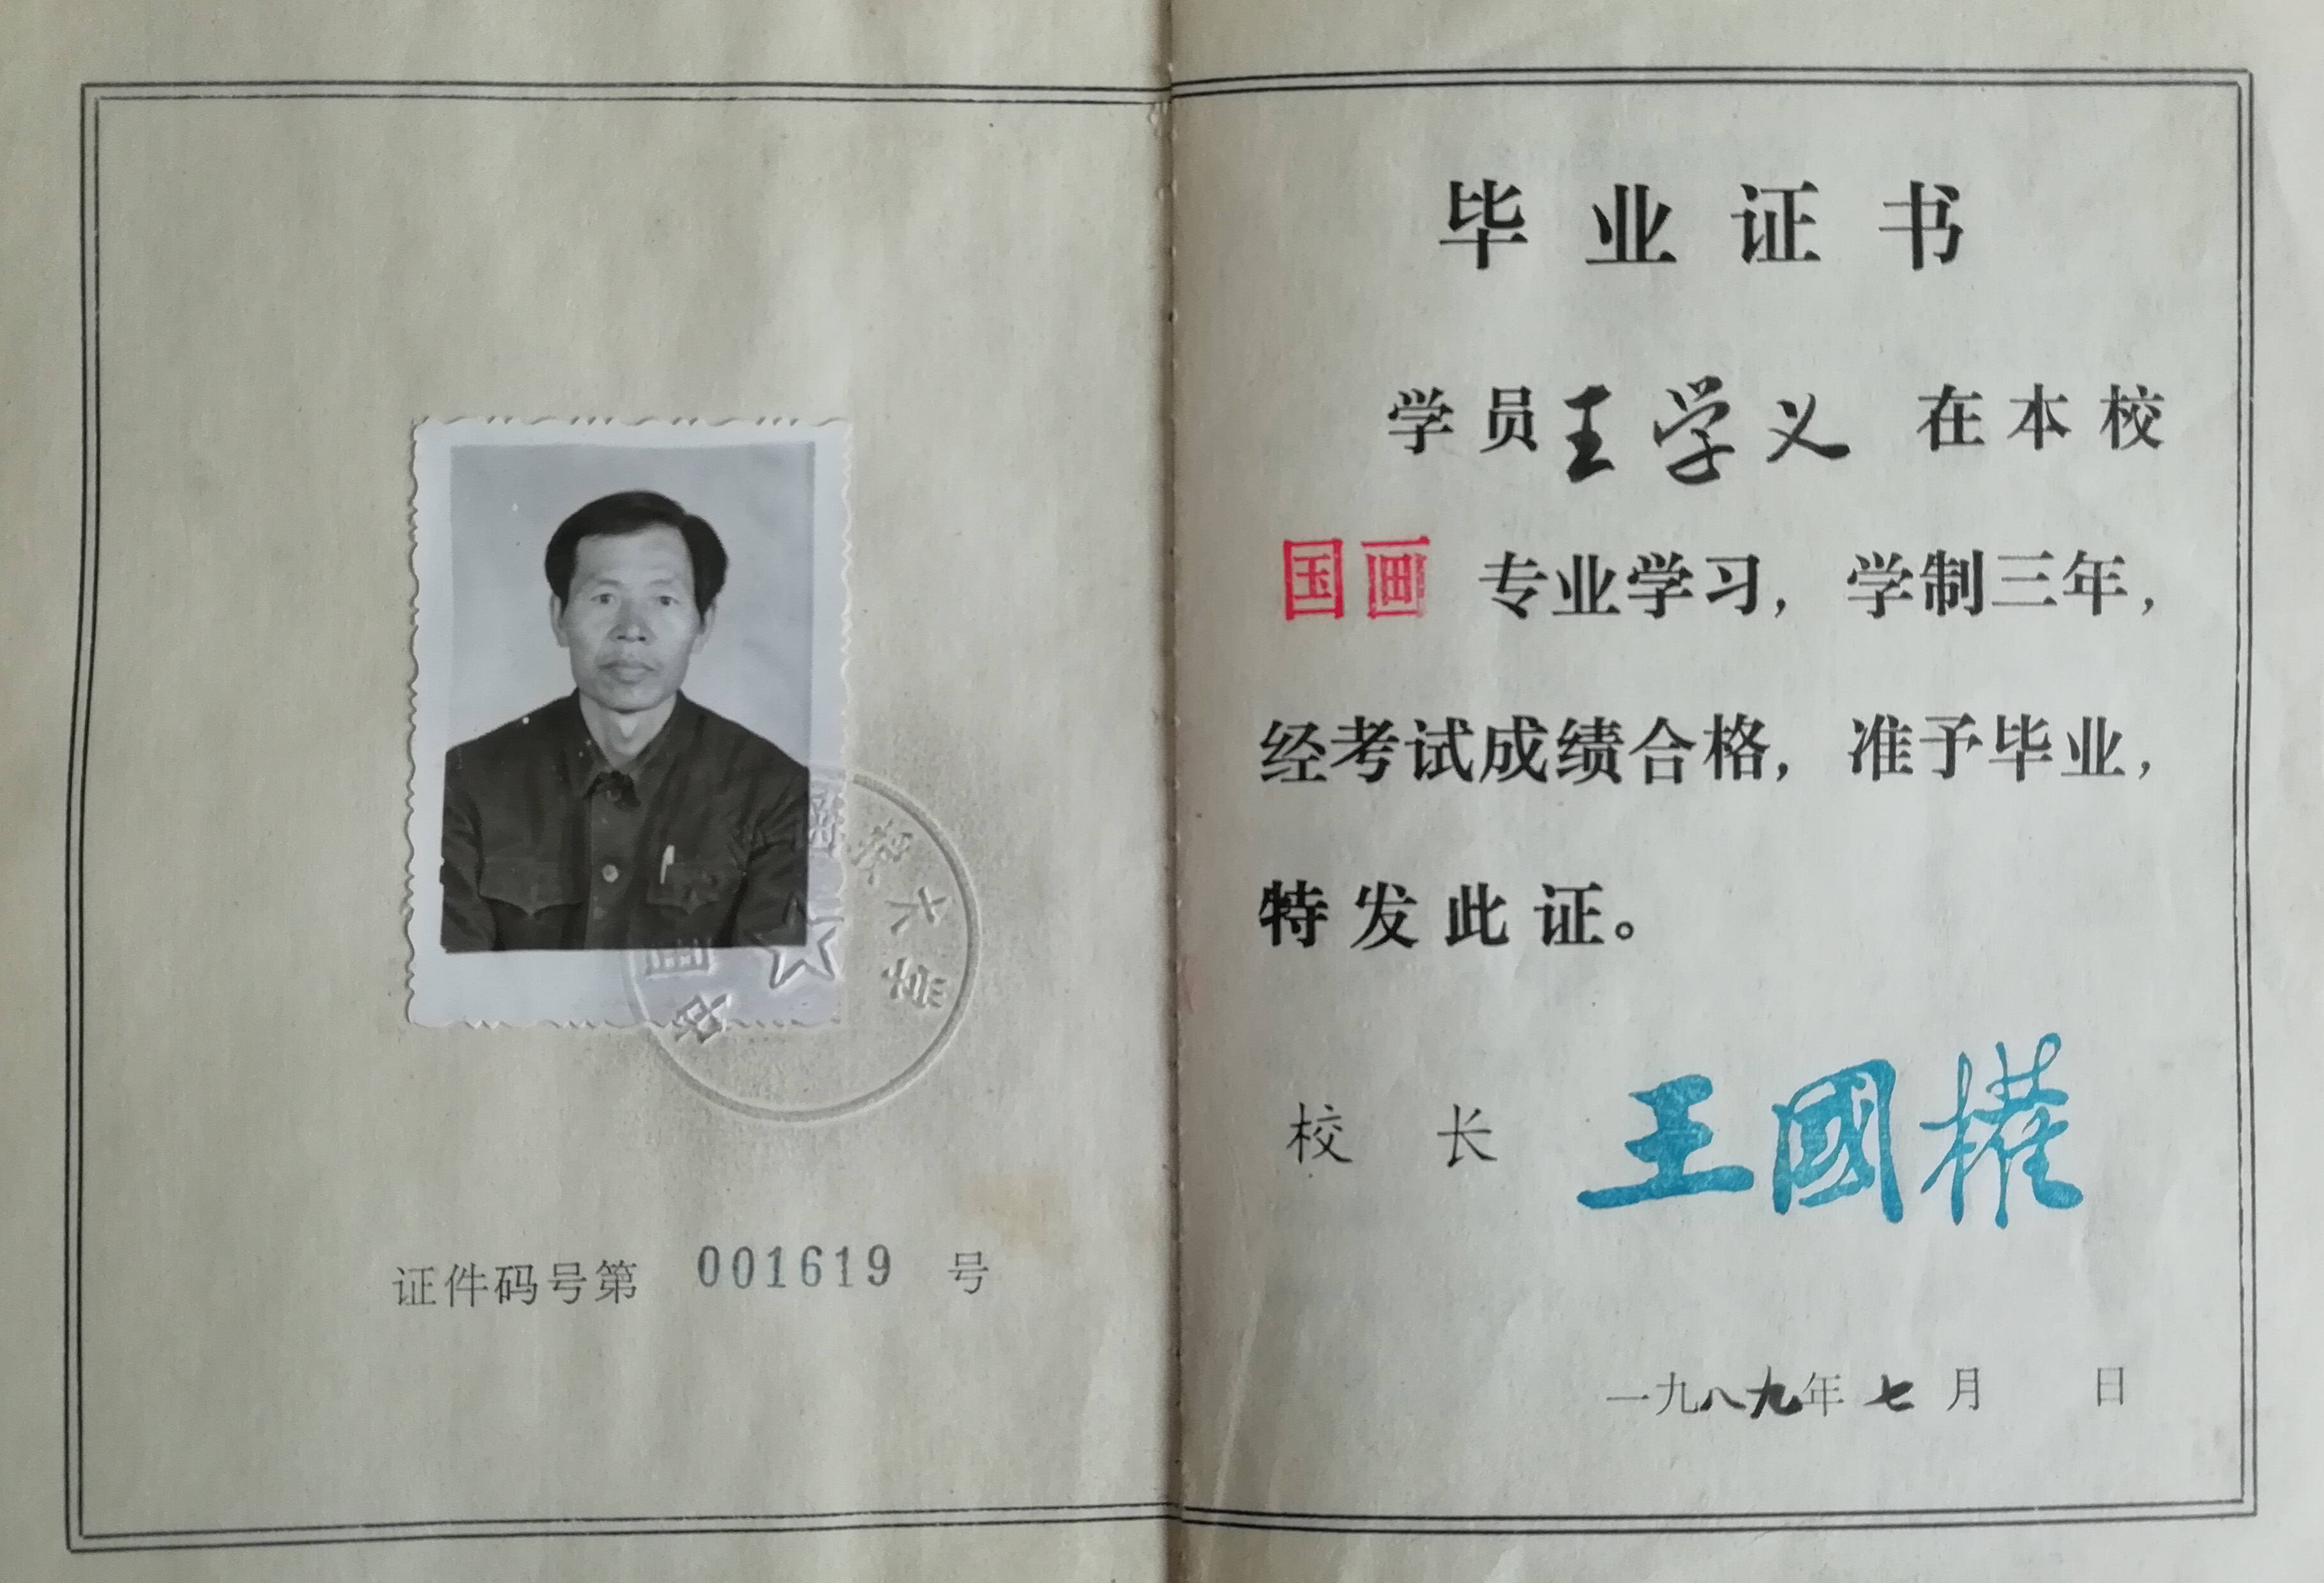 证件码号第 001619 号
毕业证书
学员王学义 在本校
国画 专业学习，学制三年，
经考试成绩合格，准予毕业，
特发此证。
校 长 王國權
一九八九年七月 日